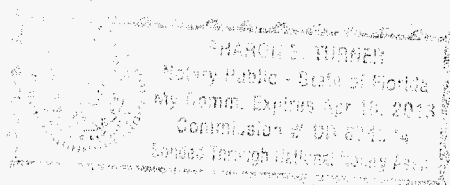 SHARON S. TURNER
Notary Public - State of Florida
My Comm. Expires Apr 18, 2013
Commission # DD
Bonded Through National Notary Assn.